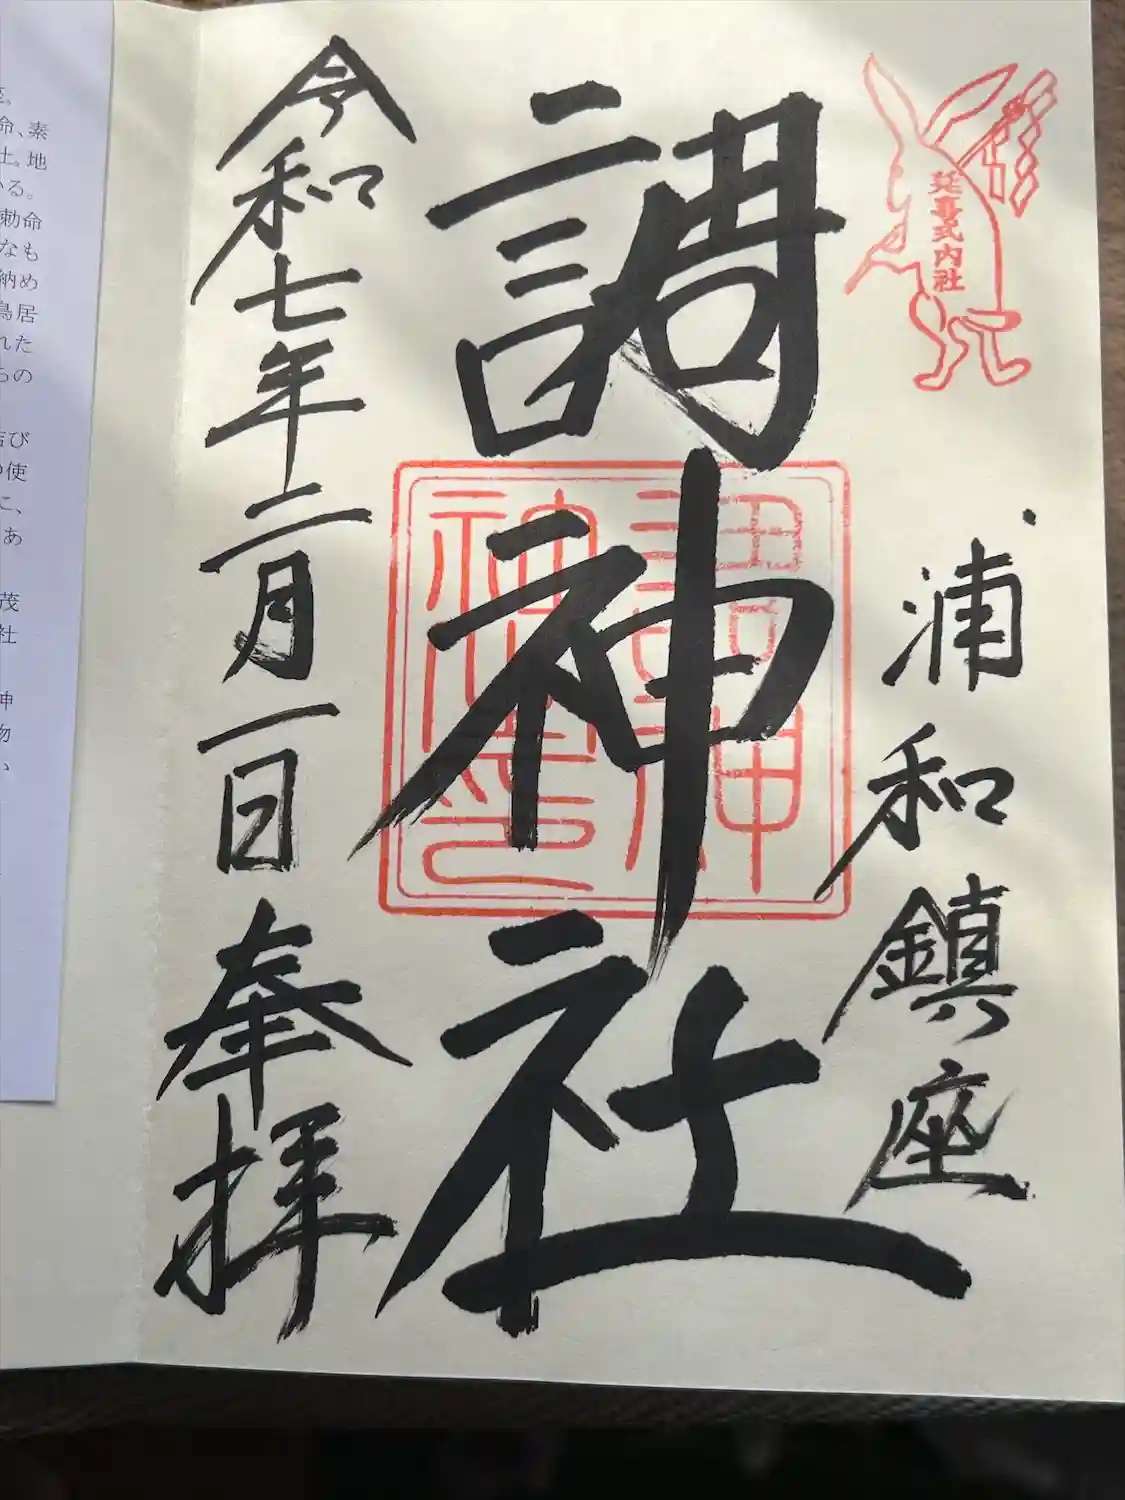 延喜式内社
浦和鎮座
調神社
調神
社之印
令和七年二月一日奉拝
。
命、素
土。地
いる。
勅命
なも
納め
鳥居
れた
らの
結び
の使
に、
あ
茂
社
神
物
、